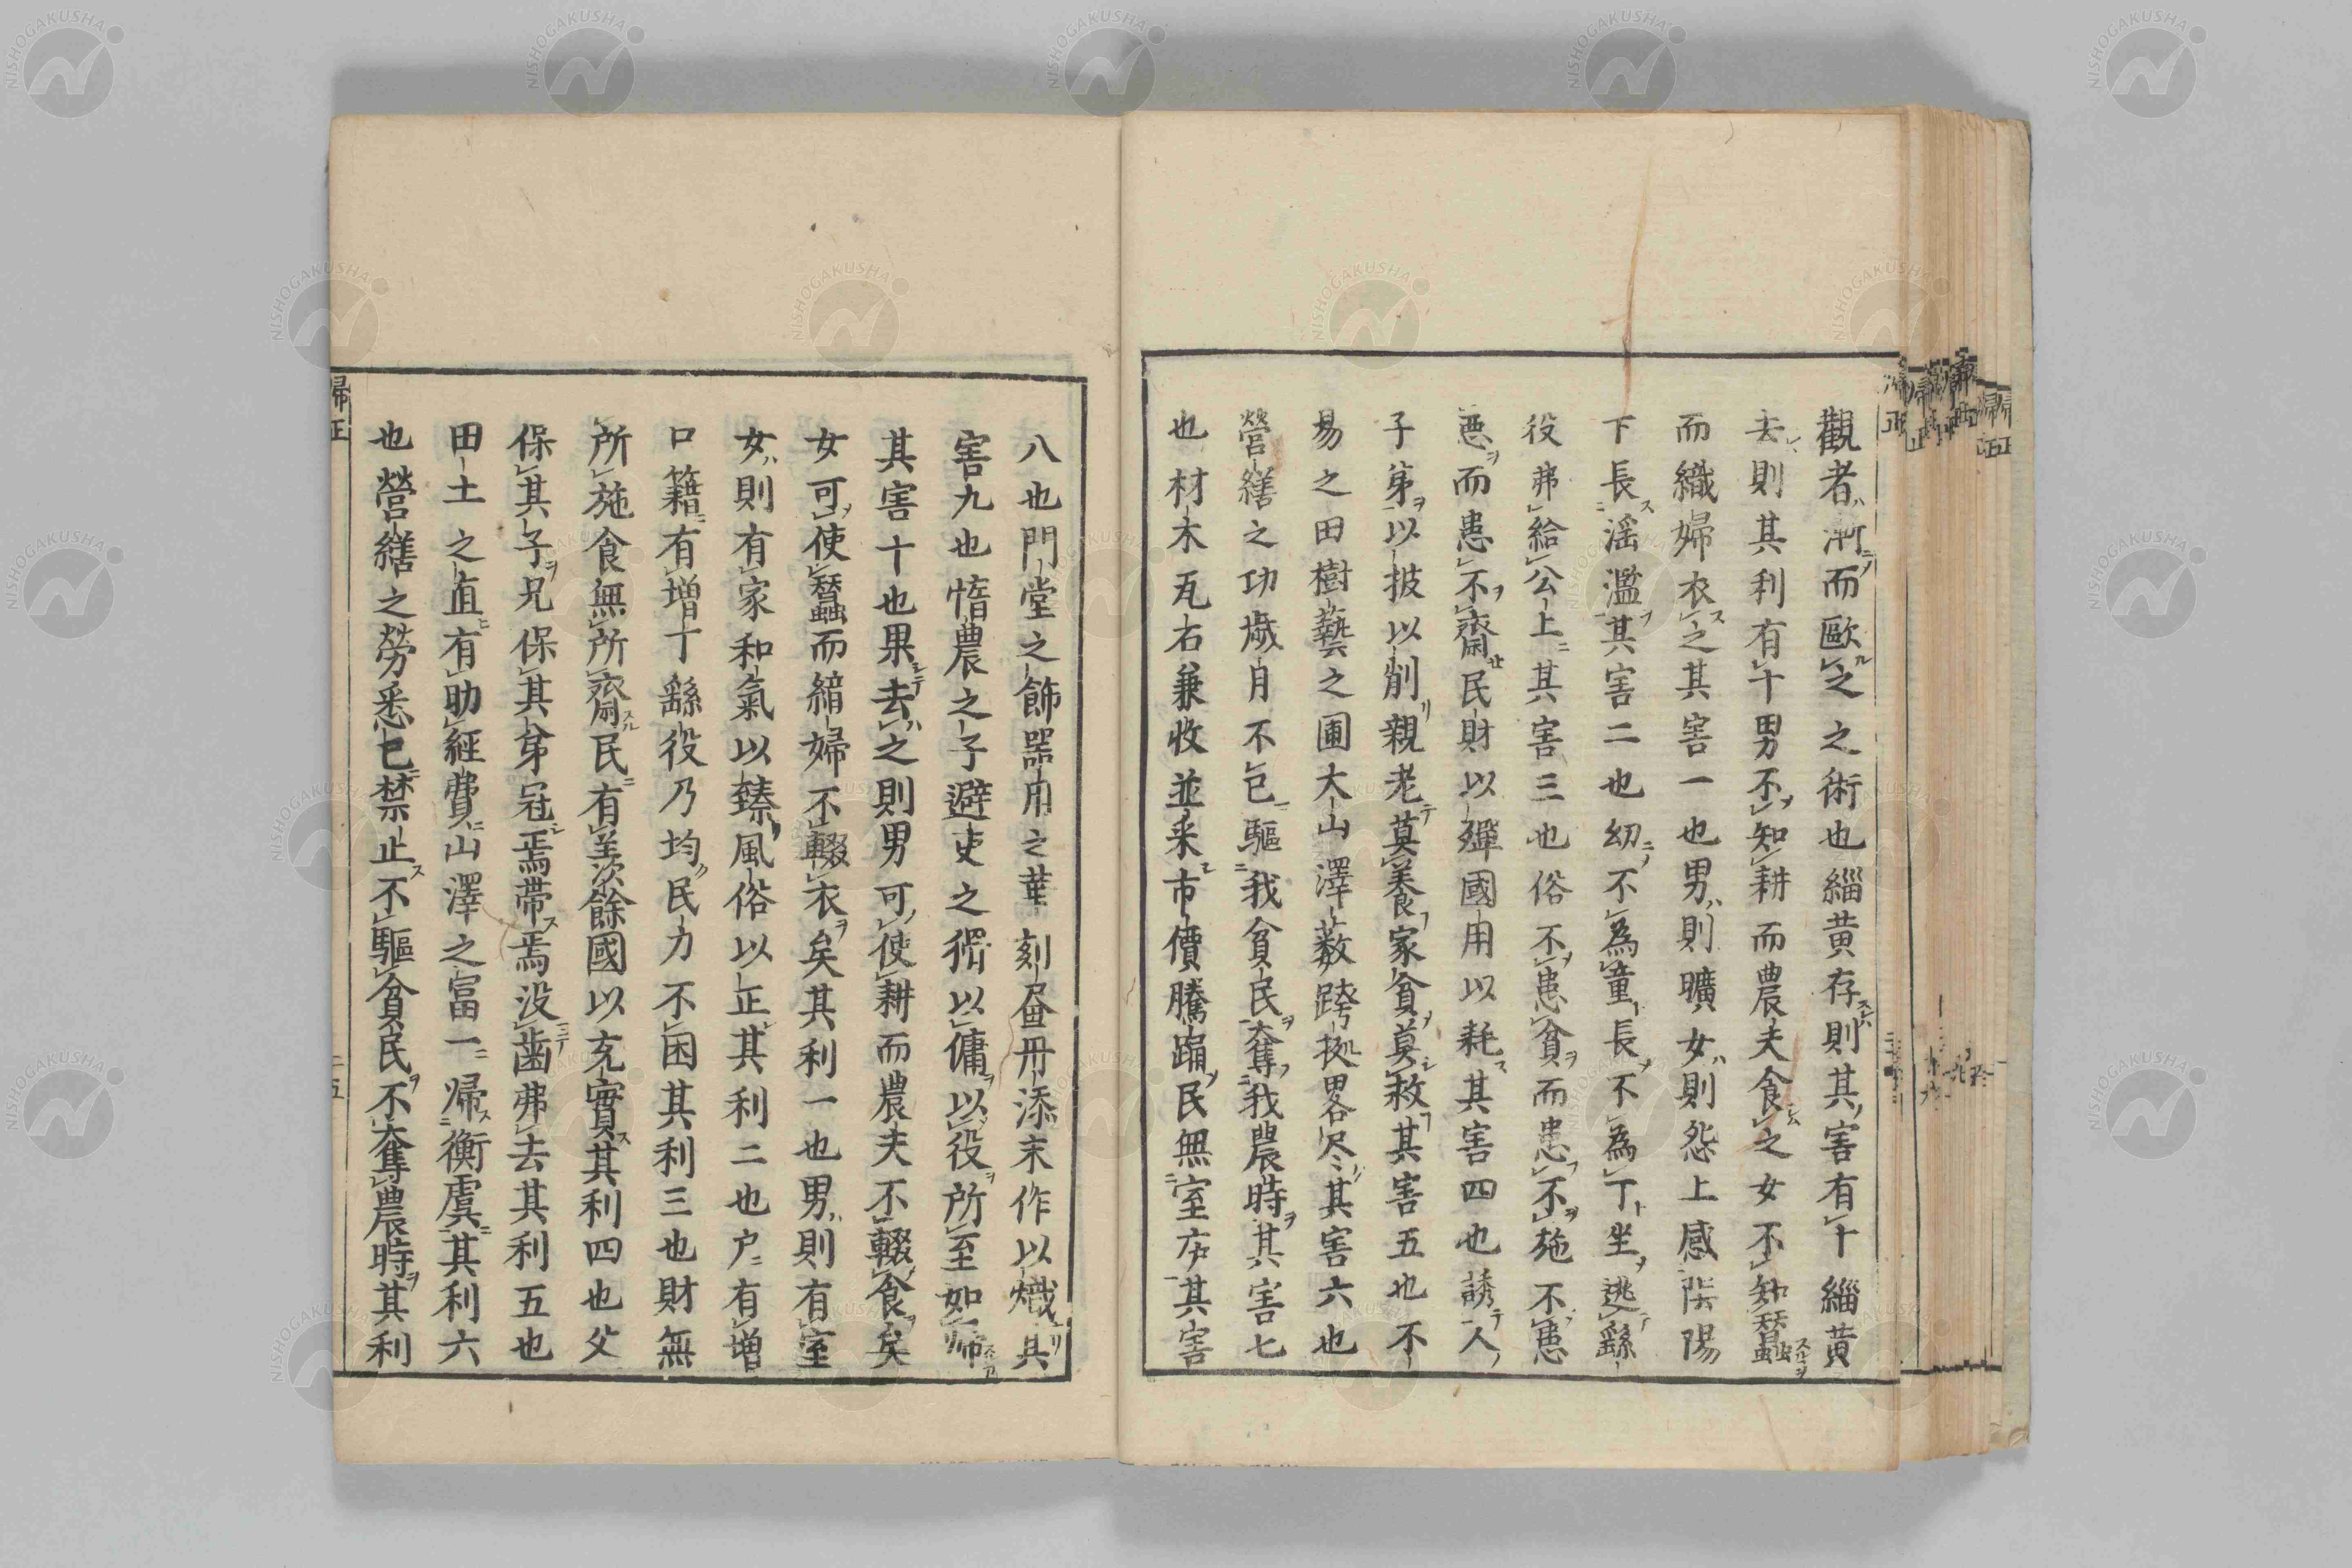 觀者漸而歐之之術也緇黄存則其害有十緇黄
去則其利有十男不知耕而農夫食之女不知蠶
而織婦衣之其害一也男則曠女則怨上感陰陽
下長滛濫其害二也幼不為童長不為丁坐逃繇
役弗給公上其害三也俗不患貧而患不施不患
惡而患不齋民財以殫國用以耗其害四也誘人
子弟以披以削親老莫養家貧莫救其害五也不
易之田樹藝之圃大山澤藪跨據畧尽其害六也
營繕之功歳月不已驅我貧民奪我農時其害七
也材木瓦石兼收並采市價騰踊民無室庐其害
八也門堂之飾器用之華刻畫丹漆末作以熾其
害九也惰農之子避吏之猾以傭以役所至如歸
其害十也果去之則男可使耕而農夫不輟食矣
女可使蠶而績婦不輟衣矣其利一也男則有室
女則有家和氣以臻風俗以正其利二也户有增
口籍有增丁繇役乃均民力不困其利三也財無
所施食無所齋民有羡餘國以充實其利四也父
保其子兄保其弟冠焉帶焉没齒弗去其利五也
田土之直有助經費山澤之富一歸衡虞其利六
也營繕之勞悉已禁止不驅貧民不奪農時其利
歸正
二五
NISHOGAKUSHA